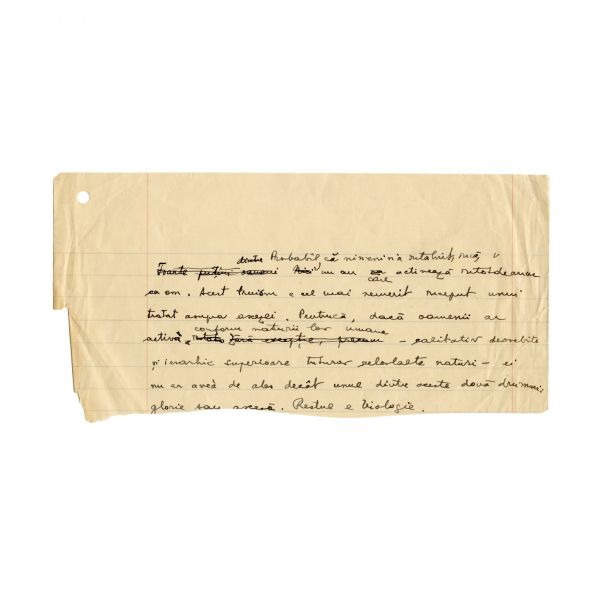 dintre Probabil că nimeni n'a
Foarte puțini oameni nu au care activează
ca om. Acest truism e cel mai nemerit început unui
tratat asupra ascezei. Pentrucă, dacă oamenii ar
conform naturii lor umane
activà fără excepție, precum – calitativ deosebite
și ierarhic superioare tuturor celorlalte naturi – ei
nu ar aveà de ales decât unul dintre aceste două drumuri:
glorie sau asceză. Restul e biologie.